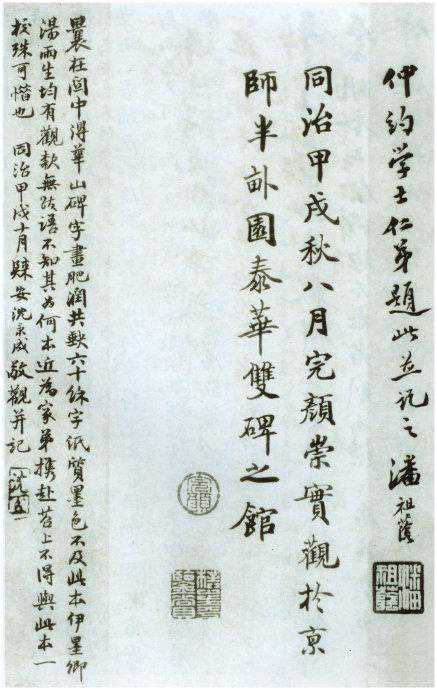 仲約学士仁弟題此並記之 潘祖蔭
同治甲戌秋八月完顏崇實觀於京
師半畝園泰華雙碑之館
曩在閩中得華山碑字畫肥潤共缺六十餘字紙質墨色不及此本伊墨卿
湯雨生均有觀款無跋語不知其為何本近為家弟携赴苕上不得與此本一
校殊可惜也 同治甲戌十月歸安沈秉成敬觀并記